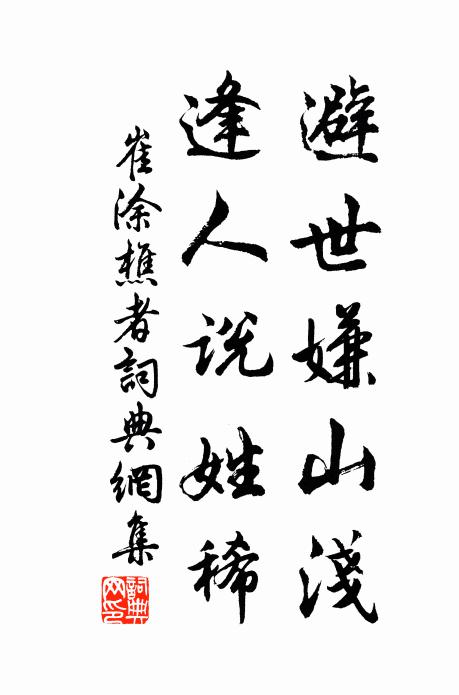 避世嫌山淺
逢人说姓稀
崔涂樵者詞典網集
詞典网印